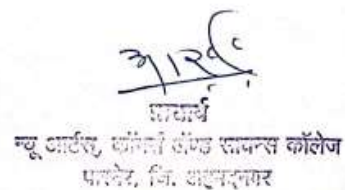 प्राचार्य
न्यू आर्टस्, कॉमर्स अॅण्ड सायन्स कॉलेज
पारनेर, जि. अहमदनगर